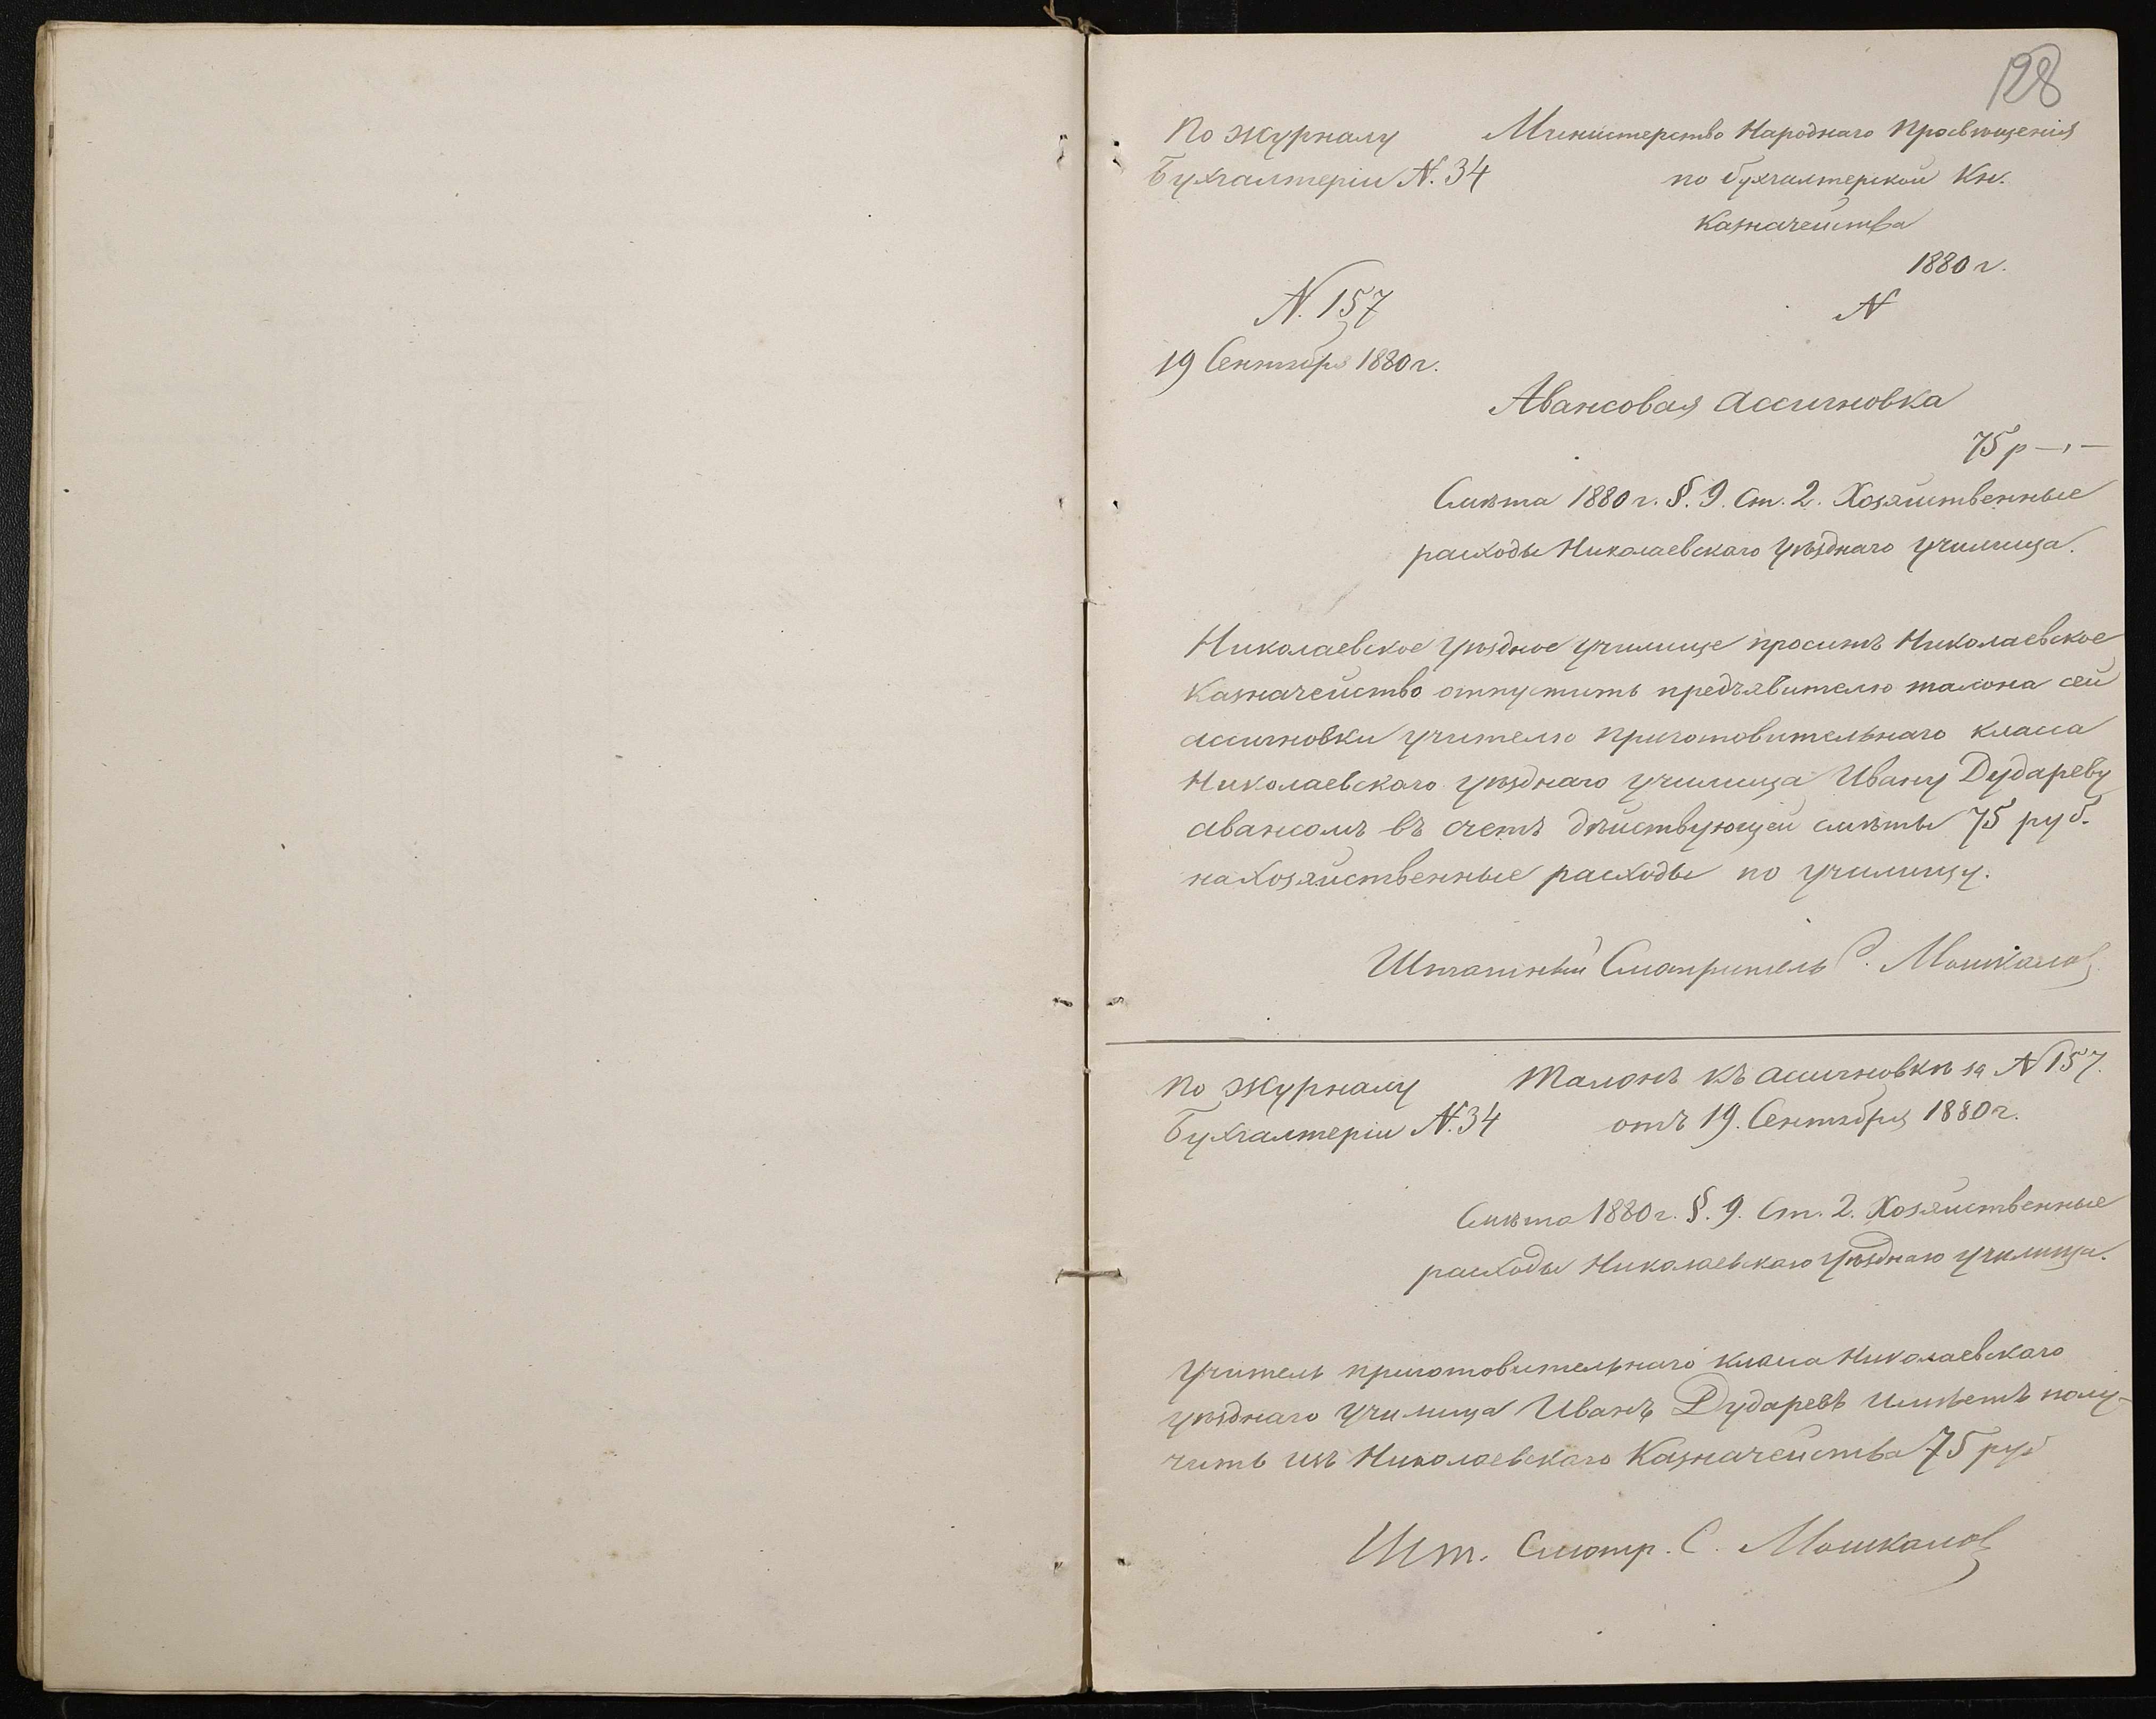 128
По журналу
Бухгалтеріи N. 34
Министерство Народнаго Просвѣщенія
по бухгалтерской Кн.
Казначейства
1880 г.
N
N. 157
19 Сентября 1880 г.
Авансовая Ассигновка
75 р —,—
Смѣта 1880 г. §. 9. Ст. 2. Хозяйственные
расходы Николаевскаго Уѣзднаго Училища.
Николаевское Уѣздное Училище проситъ Николаевское
Казначейство отпустить предъявителю талона сей
ассигновки учителю приготовительнаго класса
Николаевскаго уѣзднаго училища Ивану Дудареву
авансомъ въ счетъ дѣйствующей смѣты 75 руб.
на хозяйственные расходы по училищу.
Штатный Смотритель С. Мошкалов
По журналу
Бухгалтеріи N. 34
Талонъ къ ассигновкѣ за N 157.
отъ 19. Сентября 1880 г.
Смѣта 1880 г. §. 9. Ст. 2. Хозяйственные
расходы Николаевскаго Уѣзднаго Училища.
Учитель приготовительнаго класса Николаевскаго
уѣзднаго училища Иванъ Дударевъ имѣетъ полу-
чить изъ Николаевскаго Казначейства 75 руб
Шт. Смотр. С. Мошкалов